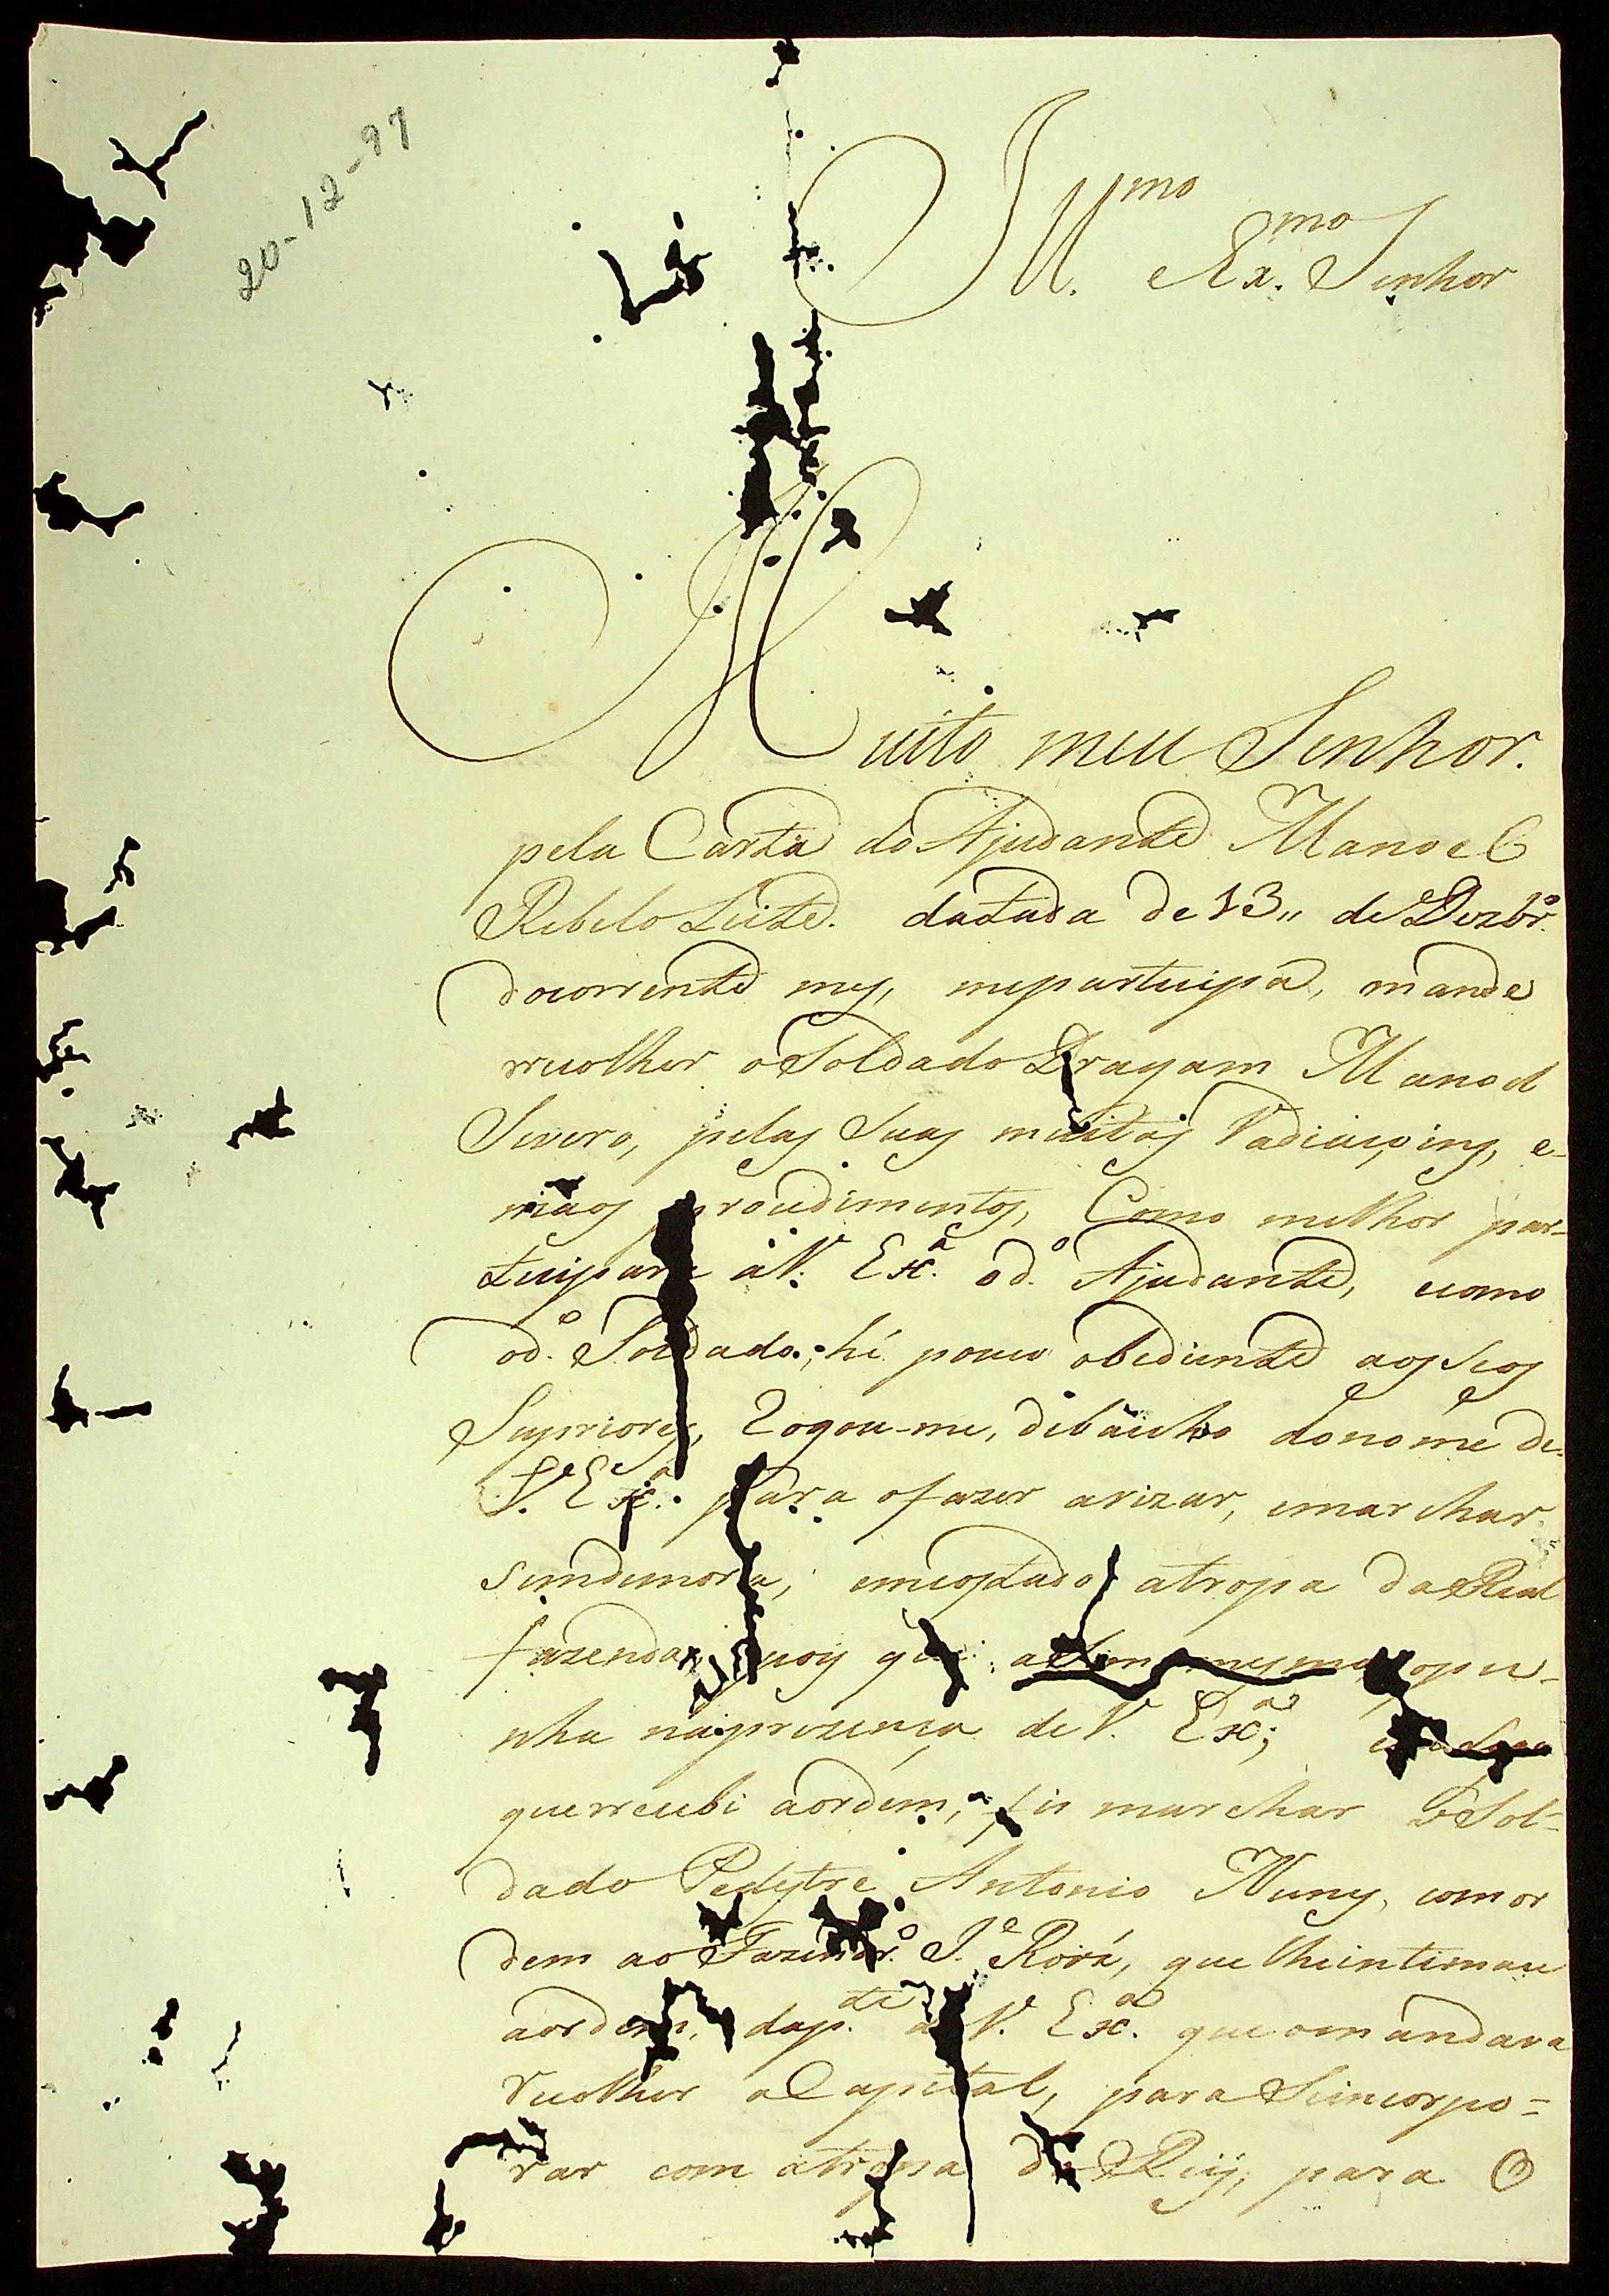 20-12-97
Ill.mo Ex.mo Senhor
Muito meu Senhor.
pela Carta do Ajudante Manoel
Rebelo Leite. datada de 13,, de Dezbr.o
docorrente mes, meparticipa, mande
rrecolher oSoldado Dragam Manoel
Severo, pelas Suas muitas Vadiaçoins, e
máos procedimentos, Como melhor par-
ticipara áV. Ex.a od.o Ajudante, ecomo
od.o Soldado, hé pouco obediente aos Seos
Superiores, Rogou-me, debaicho donome de
V. Ex.a para ofazer avizar, emarchar
semdemora, emcostado atropa da Real
fazenda, pois que opu-
nha naprezença de V. Ex.a;
querrecebi aordem, fis marchar Sol-
dado Pedestre Antonio Nunes, com or
dem ao J.e Roiz, que lheintimace
aordem, dap.te de V. Ex.a que omandava
recolher a Capital, para Seincorpo-
rar com atropa de para O